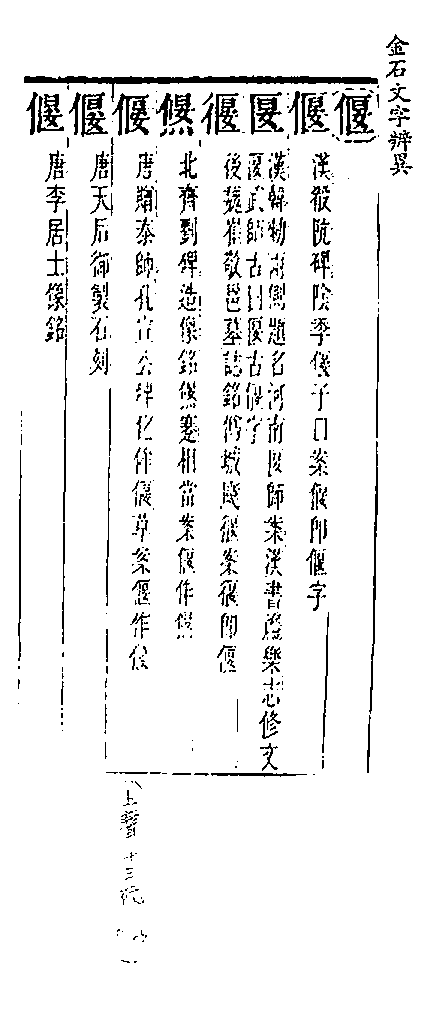 金石文字辨異
偃
偃 漢殽阬碑陰季偃子□案偃即偃字
匽 漢韓勑兩側題名河南匽師案漢書禮樂志修文
匽武師古曰匽古偃字
偃 後魏崔敬邕墓誌銘偃案偃即偃
偃 北齊劉碑造像銘偃蹇相當案偃作偃
偃 唐贈泰師孔宣公碑化偃草案偃作偃
偃 唐天后御製石刻
偃 唐李居士像銘
上聲 十三阮